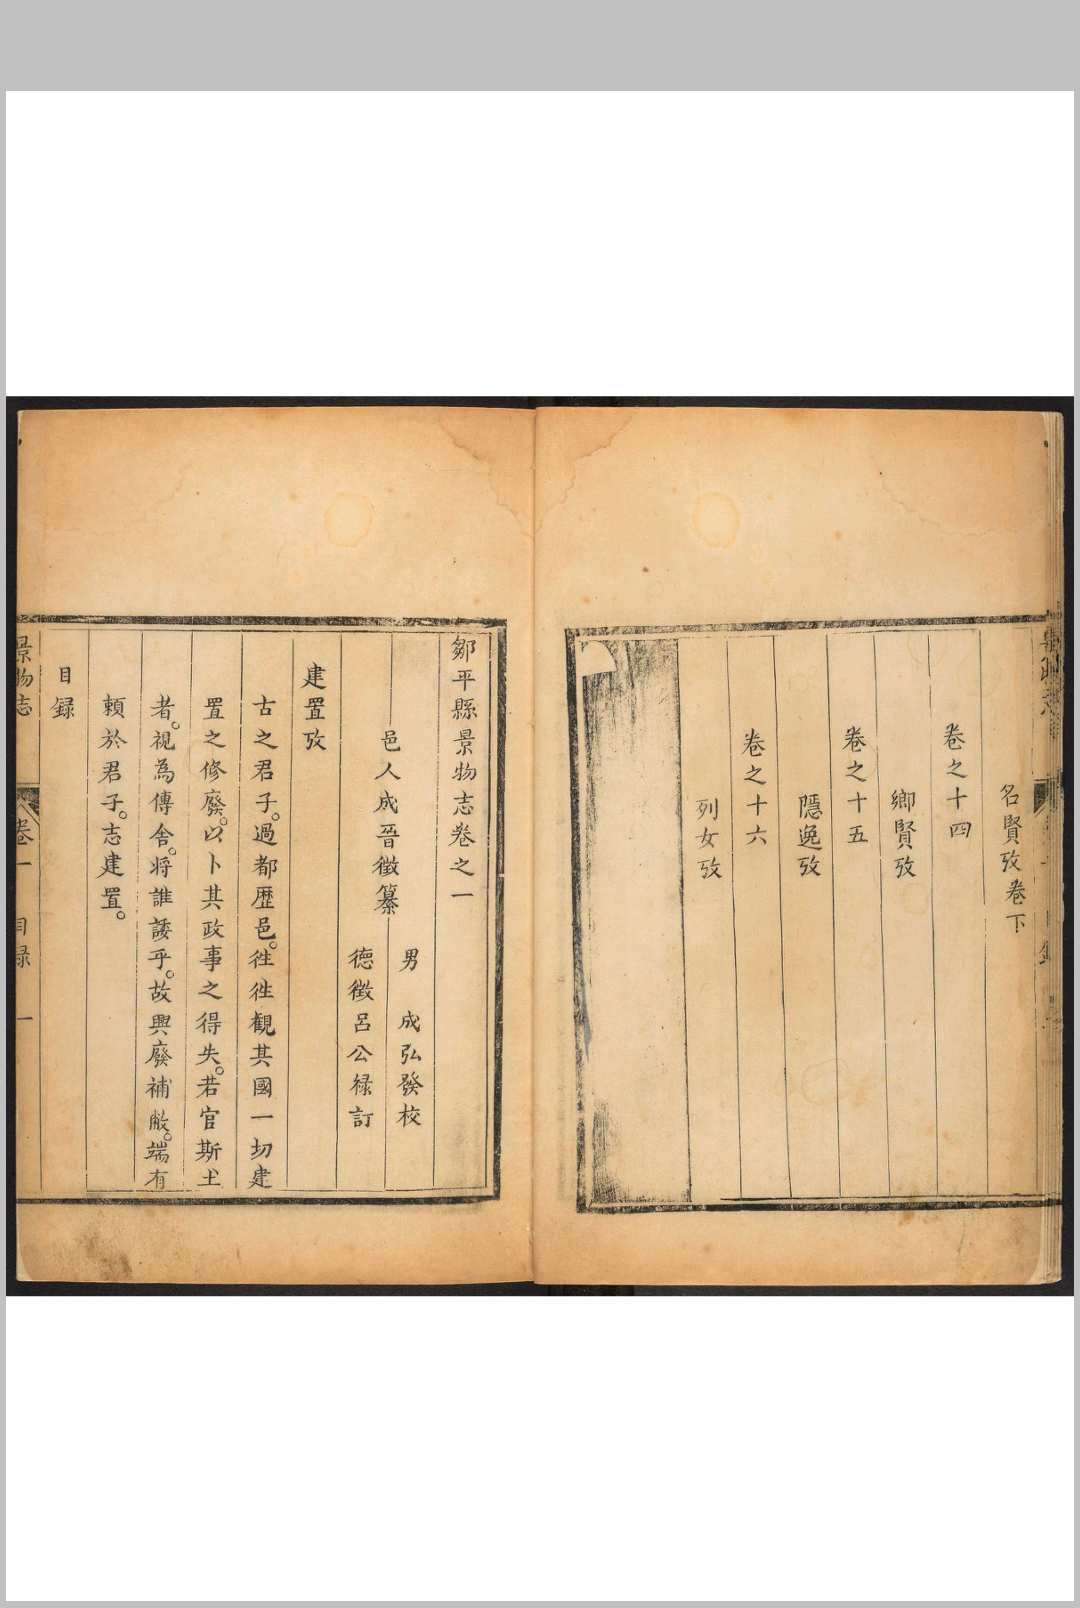 名賢攷卷下
卷之十四
鄉賢攷
卷之十五
隱逸攷
卷之十六
列女攷
鄒平縣景物志卷之一
邑人成晉徵纂
男　成弘發校
德徵呂公祿訂
建置攷
古之君子。過都歷邑。徃徃觀其國一切建
置之修廢。以卜其政事之得失。若官斯土
者。視為傳舍。將誰諉乎。故興廢補敝。端有
賴於君子。志建置。
目録
景物志　卷一　目録　一